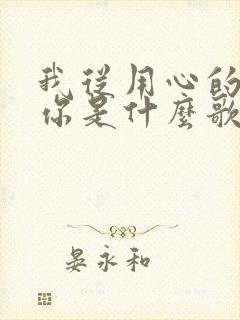 我從用心的
你是什麼歌
晏永和